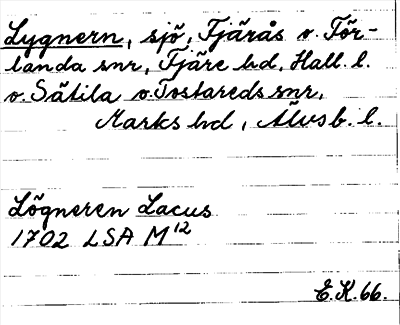 Lygnern, sjö, Fjärås o. För-
landa snr, Fjäre hd, Hall. l.
o. Sätila o. Tostareds snr,
Marks hd, Älvsb. l.
Lögneren Lacus
1702 LSA M¹²
E.K. 66.